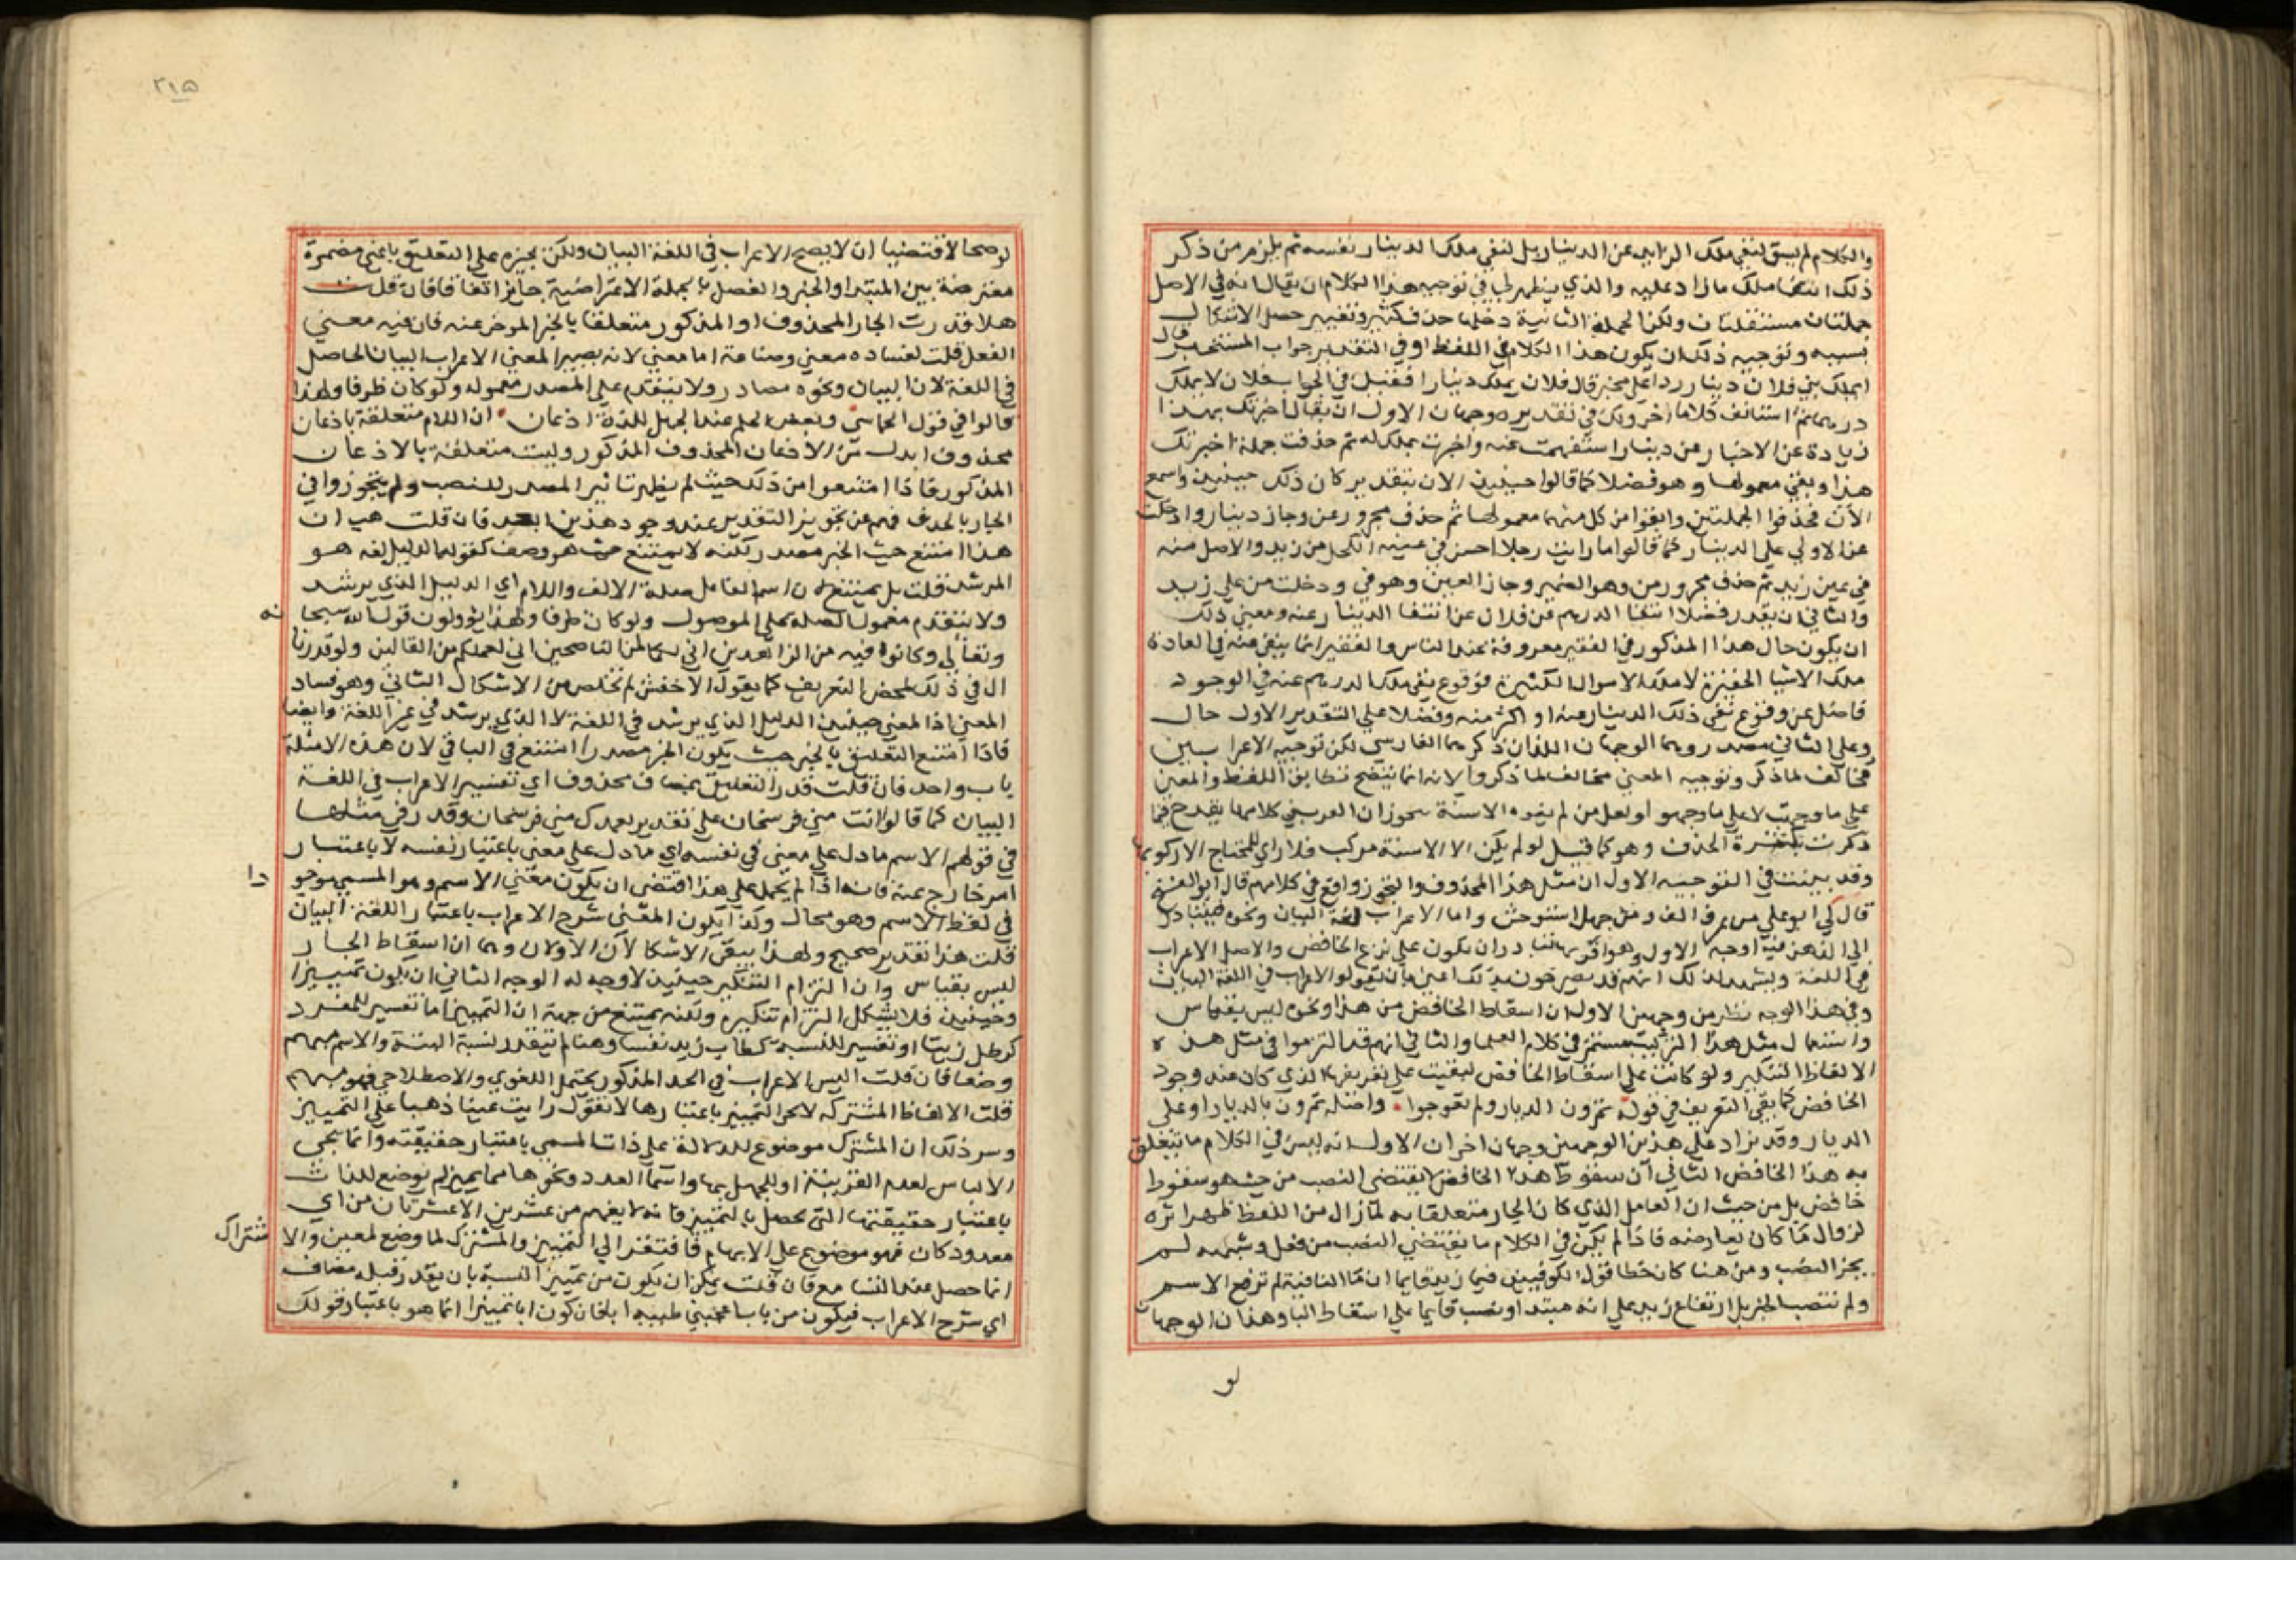 والكلام لم يسق لنفي ملك الزايد عن الدينار بل لنفي ملك الدينار نفسه ثم يلزم من ذكر
ذلك انتفا ملك ما زاد عليه والذي يظهر لي في توجيه هذا الكلام ان يقال انه في الاصل
جملتان مستقلتان ولكن الجملة الثانية دخلها حذف كثير وتغيير حصل الاشكال
بسببه وتوجيه ذلك ان يكون هذا الكلام في اللفظ او في التقدير جواب المستخبر قال
ايملك بني فلان دينار ردا على مخبر قال فلان يملك دينارا فقيل في الجواب فلان لا يملك
درهما ثم استانف كلاما اخر ولك في تقديره وجهان الاول ان يقال اخبرتك بهذا
زيادة عن الاخبار عن دينار استفهمت عنه واخبرت بملكه له ثم حذفت جملة اخبرتك
هذا وبقي معمولها وهو فضلا كما قالوا حينيذ الان بتقدير كان ذلك حينيذ واسمع
الان فحذفوا الجملتين وابقوا من كل منهما معمولها ثم حذف مجرور عن وجاز دينار وادخلت
عن الاولي علي الدينار كما قالوا ما رايت رجلا احسن في عينه الكحل من زيد والاصل منه
في عين زيد ثم حذف مجرور من وهو الضمير وجاز العين وهو في ودخلت من علي زيد
والثاني ان يقدر فضلا انتفا الدرهم عن فلان عن انتفا الدينار عنه ومعني ذلك
ان يكون حال هذا المذكور في الفقر معروفة عند الناس والفقير انما ينفي عنه في العادة
ملك الاشيا الحقيرة لا ملك الاموال الكثيرة فوقوع نفي ملك الدرهم عنه في الوجود
فاضل عن وقوع نفي ذلك الدينار عنه او اكثر منه وفضلا علي التقدير الاول حال
وعلي الثاني مصدر وهما الوجهان اللذان ذكرهما الفارسي لكن توجيه الاعرابين
مخالف لما ذكر وتوجيه المعني مخالف لما ذكروا لانه انما يتضح تطابق اللفظ والمعني
علي ما وجهت لا علي ما وجهوا ولعل من لم يقوه الانسة بتجوزات العرب في كلامها يقدح فيما
ذكرت بكثرة الحذف وهو كما قيل لو لم يكن الا الاسنة مركب فلا راي للمحتاج الا ركوبها
وقد بينت في التوجيه الاول ان مثل هذا المحذوف والتجوز واقع في كلامهم قال ابو الفتح
قال لي ابو علي من عرف الف ومن جهل استوحش واما الاعراب لغة البيان ونحوه فيتبادر
الي الذهن فيه اوجه الاول وهو اقربها تبادرا ان يكون علي نزع الخافض والاصل الاعراب
في اللغة ويشهد لذلك انهم قد يصرحون بذلك اعني بان يقولوا الاعراب في اللغة البيان
وفي هذا الوجه نظر من وجهين الاول ان اسقاط الخافض من هذا ونحوه ليس بقياس
واستعمال مثل هذا التركيب مستمر في كلام العلما والثاني انهم قد التزموا في مثل هذه
الالفاظ التنكير ولو كانت علي اسقاط الخافض لبقيت علي تعريفها الذي كان عند وجود
الخافض كما بقي التعريف في قوله تمرون الديار ولم تعوجوا واصله تمرون بالديار او علي
الديار وقد يزاد علي هذين الوجهين وجهان اخران الاول انه ليس في الكلام ما يتعلق
به هذا الخافض الثاني ان سقوط الخافض لا يقتضي النصب من حيث هو سقوط
خافض بل من حيث ان العامل الذي كان الجار متعلقا به لما زال من اللفظ ظهر اثره
لزوال ما كان يعارضه فاذا لم يكن في الكلام ما يقتضي النصب من فعل وشبهه لم
يجز النصب ومن هنا كان خطا قول الكوفيين في ما زيد قايما ان ما النافية لم ترفع الاسم
ولم تنصب الخبر بل ارتفاع زيد علي انه مبتدا ونصب قايما علي اسقاط البا وهذان الوجهان
لو
٢١٥
لو صحا لاقتضيا ان لا يصح الاعراب في اللغة البيان ولكن يجيزه علي التعليق باعني مضمرة
معترضة بين المبتدا والخبر والفصل بالجملة الاعتراضية جايز اتفاقا فان قلت
هلا قدرت الجار المحذوف او المذكور متعلقا بالخبر الموخر عنه فان فيه معني
الفعل قلت لفساده معني وصناعة اما معني لانه يصير المعني الاعراب البيان الحاصل
في اللغة لان البيان ونحوه مصادر ولا يتقدم علي المصدر معموله ولو كان ظرفا ولهذا
قالوا في قول الحماسي وبعض الحلم عند الجهل للذلة اذعان ان اللام متعلقة باذعان
محذوف ابدل من الاذعان المحذوف المذكور وليست متعلقة بالاذعان
المذكور فاذا امتنعوا من ذلك حيث لم يظهر تاثير المصدر للنصب ولم يتجوزوا في
الجار بالحذف فهم عن تجويز التقدير عند وجود هذين ابعد فان قلت هب ان
هذا امتنع حيث الخبر مصدر لكنه لا يمتنع حيث هو وصف كقولهم الدليل لغة هو
المرشد قلت بل يمتنع لان اسم الفاعل صلة الالف واللام اي الدليل الذي يرشد
ولا يتقدم معمول الصلة علي الموصول ولو كان ظرفا ولهذا يؤولون قول الله سبحانه
وتعالي وكانوا فيه من الزاهدين اني لكما لمن الناصحين اني لعملكم من القالين ولو قدرنا
ال في ذلك لمحض التعريف كما يقول الاخفش لم نخلص من الاشكال الثاني وهو فساد
المعني اذ المعني حينيذ الدليل الذي يرشد في اللغة لا الذي يرشد في غير اللغة وايضا
فاذا امتنع التعليق بالخبر حيث يكون الخبر مصدرا امتنع في الباقي لان هذه الامثلة
باب واحد فان قلت قدر التعليق بمضاف محذوف اي تفسير الاعراب في اللغة
البيان كما قالوا انت مني فرسخان علي تقدير بعدك مني فرسخان وقدر في مثلها
في قولهم الاسم ما دل علي معني في نفسه اي ما دل علي معني باعتبار نفسه لا باعتبار
امر خارج عنه فانه اذا لم يحمل علي هذا اقتضي ان يكون معني الاسم وهو المسمي موجودا
في لفظ الاسم وهو محال وكذا يكون المعني شرح الاعراب باعتبار اللغة البيان
قلت هذا تقدير صحيح ولهذا يبقي الاشكالان الاولان وهما ان اسقاط الجار
ليس بقياس وان التزام التنكير حينيذ لا وجه له الوجه الثاني ان يكون تمييزا
وحينيذ فلا يشكل التزام تنكيره ولكنه يمتنع من جهة ان التمييز اما تفسير للمفرد
كرطل زيتا او تفسير للنسبة كطاب زيد نفسا وهنا لم تتقدم نسبة البتة والاسم مبهم
وضعا فان قلت اليس الاعراب في الحد المذكور يحتمل اللغوي والاصطلاحي فهو مبهم
قلت الالفاظ المشتركة لا يجي التمييز باعتبارها لا تقول رايت عينا ذهبا علي التمييز
وسر ذلك ان المشترك موضوع للدلالة علي ذات المسمي باعتبار حقيقته وانما يجي
الالباس لعدم القرينة او للجهل بها واسما العدد ونحوها مما يميز لم يوضع للذات
باعتبار حقيقتها التي تحصل بالتمييز فانه لا يفهم من عشرين الا عشرتان من اي
معدود كان فهو موضوع علي الابهام فافتقر الي التمييز والمشترك لما وضع لمعين والاشتراك
انما حصل عند السامع فان قلت يمكن ان يكون من تمييز النسبة بان يقدر قبله مضاف
اي شرح الاعراب فيكون من باب اعجبني طيبه ابا فان كون ابا تمييزا انما هو باعتبار قولك